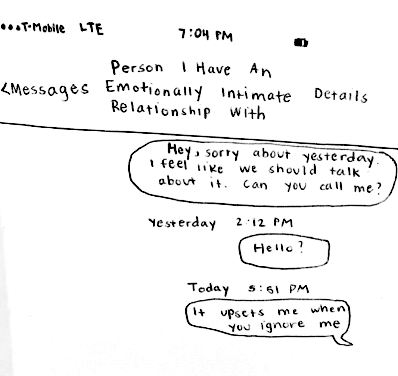 ●●●T-Mobile LTE 7:04 PM
Person I Have An
<Messages Emotionally Intimate Details
Relationship With
Hey, sorry about yesterday.
I feel like we should talk
about it. Can you call me?
Yesterday 2:12 PM
Hello?
Today 5:51 PM
It upsets me when
you ignore me